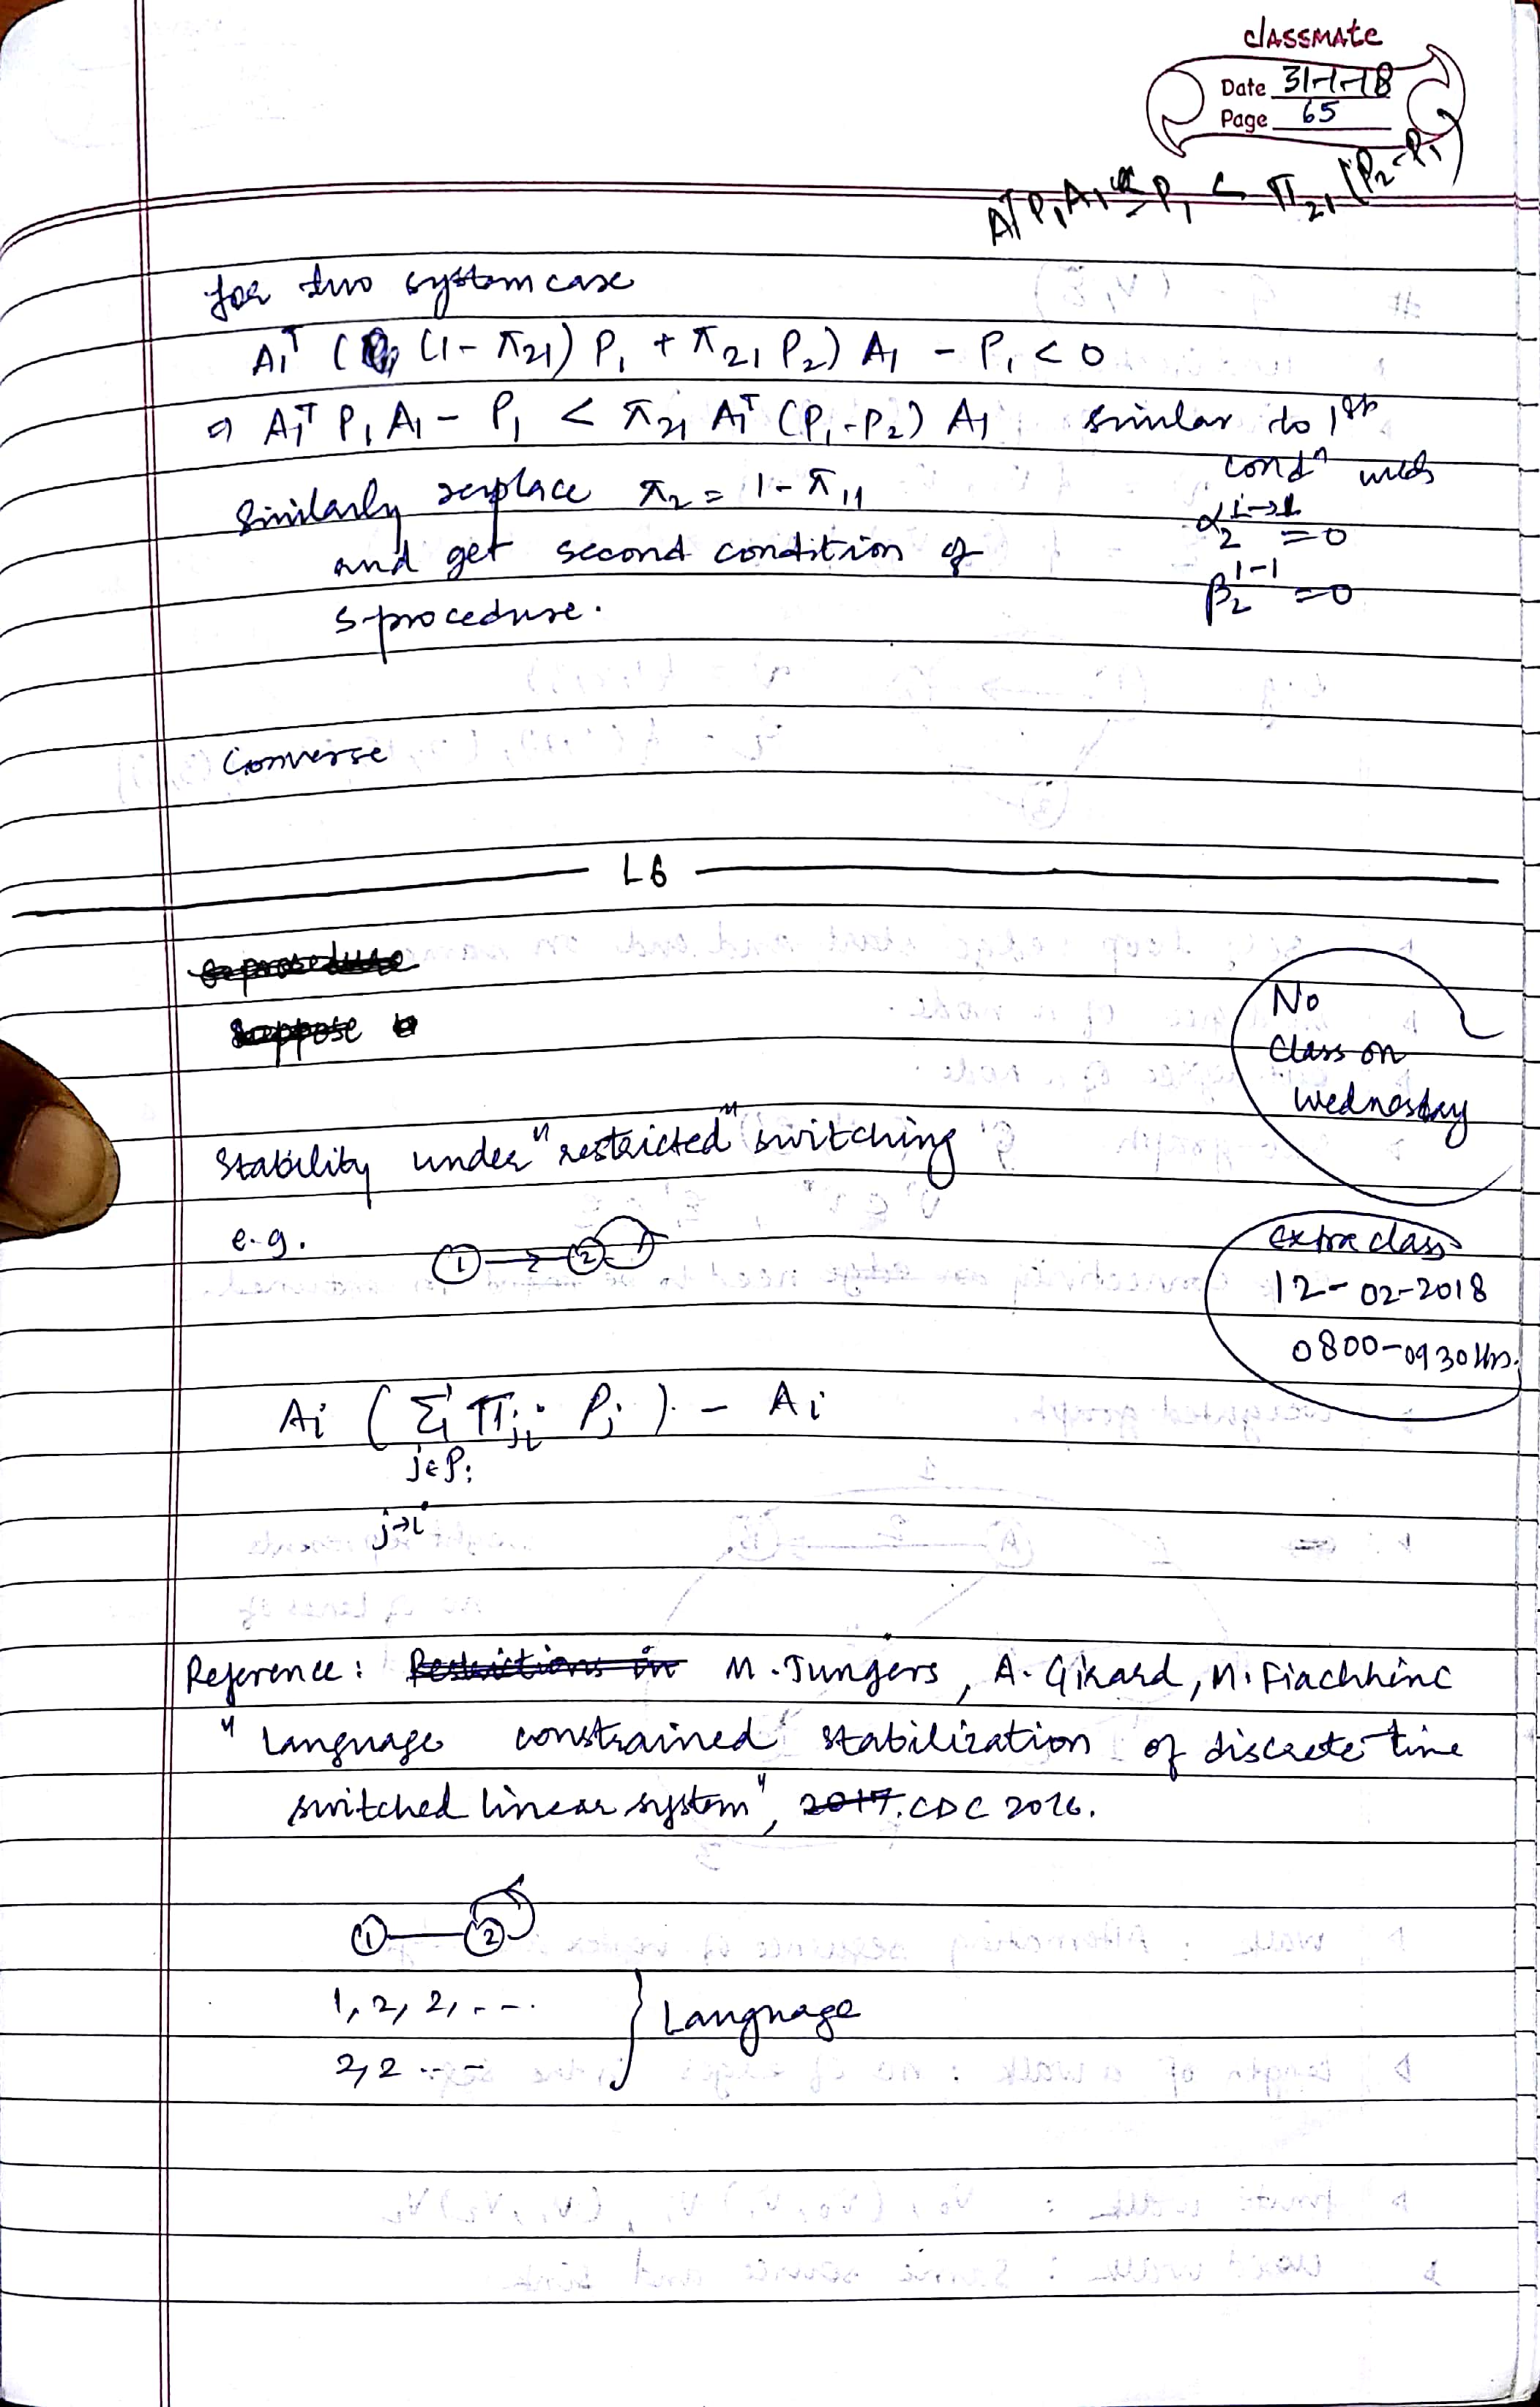 classmate
Date 31-1-18
Page 65
A₁ᵀP₁A₁ - P₁ < π₂₁ (P₂-P₁)
for two system case
A₁ᵀ ( (1-π₂₁) P₁ + π₂₁ P₂) A₁ - P₁ < 0
⇒ A₁ᵀ P₁ A₁ - P₁ < π₂₁ A₁ᵀ (P₁-P₂) A₁ similar to 1st
condⁿ with
α₂ = 0
β₂¹⁻¹ = 0
Similarly replace π₂ = 1-π₁₁
and get second condition of
s-procedure.
Converse
L6
s-procedure
Suppose
No
class on
wednesday
Stability under "restricted" switching
e.g. 1 → 2
extra class
12-02-2018
0800-0930 Hrs.
Aᵢ ( Σ πⱼᵢ Pⱼ ) - Aᵢ
j∈Pᵢ
j→i
Reference: Restrictions in M. Jungers, A. Girard, M. Fiachhinc
"Language constrained stabilization of discrete time
switched linear system", 2017. CDC 2016.
1 2
1, 2, 2, ---
2, 2 ---
} Language